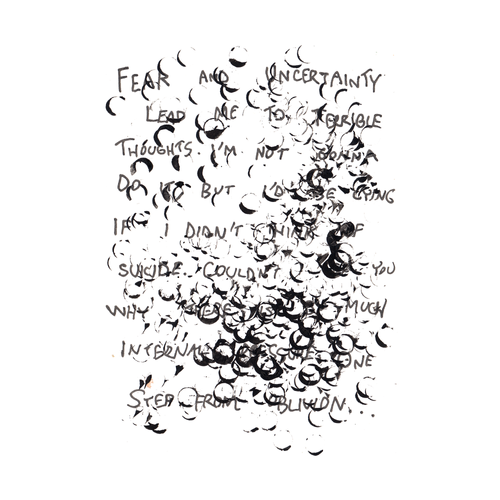 FEAR AND UNCERTAINTY
LEAD ME TO TERRIBLE
THOUGHTS I'M NOT GONNA
DO IT BUT I'D BE LYING
IF I DIDN'T THINK OF
SUICIDE COULDN'T YOU
WHY THERE IS MUCH
INTERNAL PRESSURE ONE
STEP FROM OBLIVION